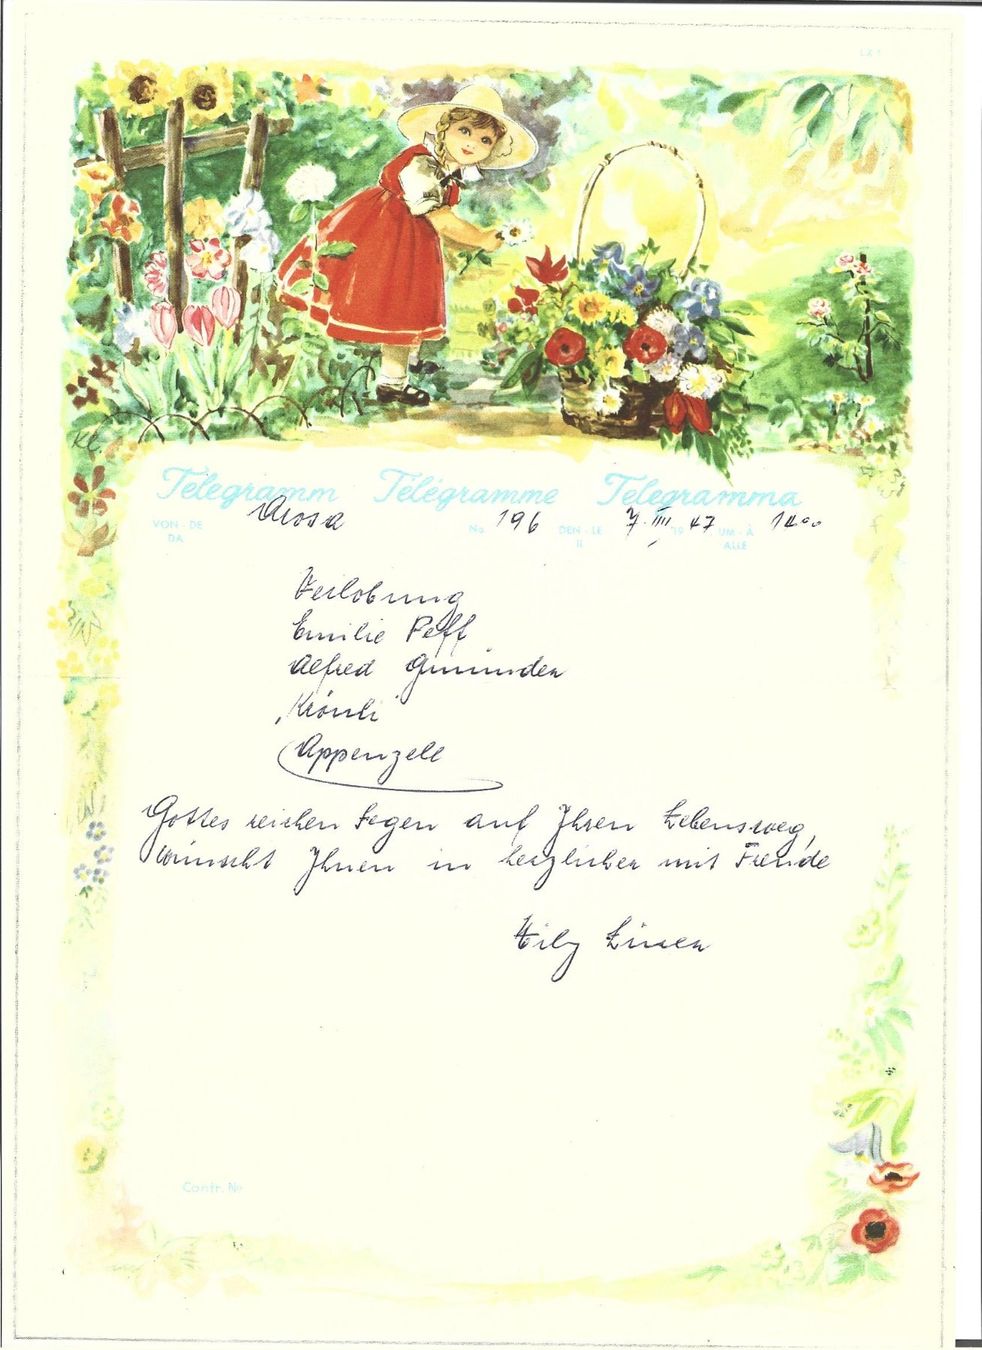 LX 1
KE.
Telegramm Télégramme Telegramma
VON - DE Arosa No. 196 DEN - LE 7. III 1947 UM - À 14 00
DA IL ALLE
Verlobung
Emilie Peff
Alfred Gmünder
"Krönli"
Appenzell
Gottes reichen Segen auf Ihren Lebensweg,
wünscht Ihnen in herzlicher mit Freude
Contr. No